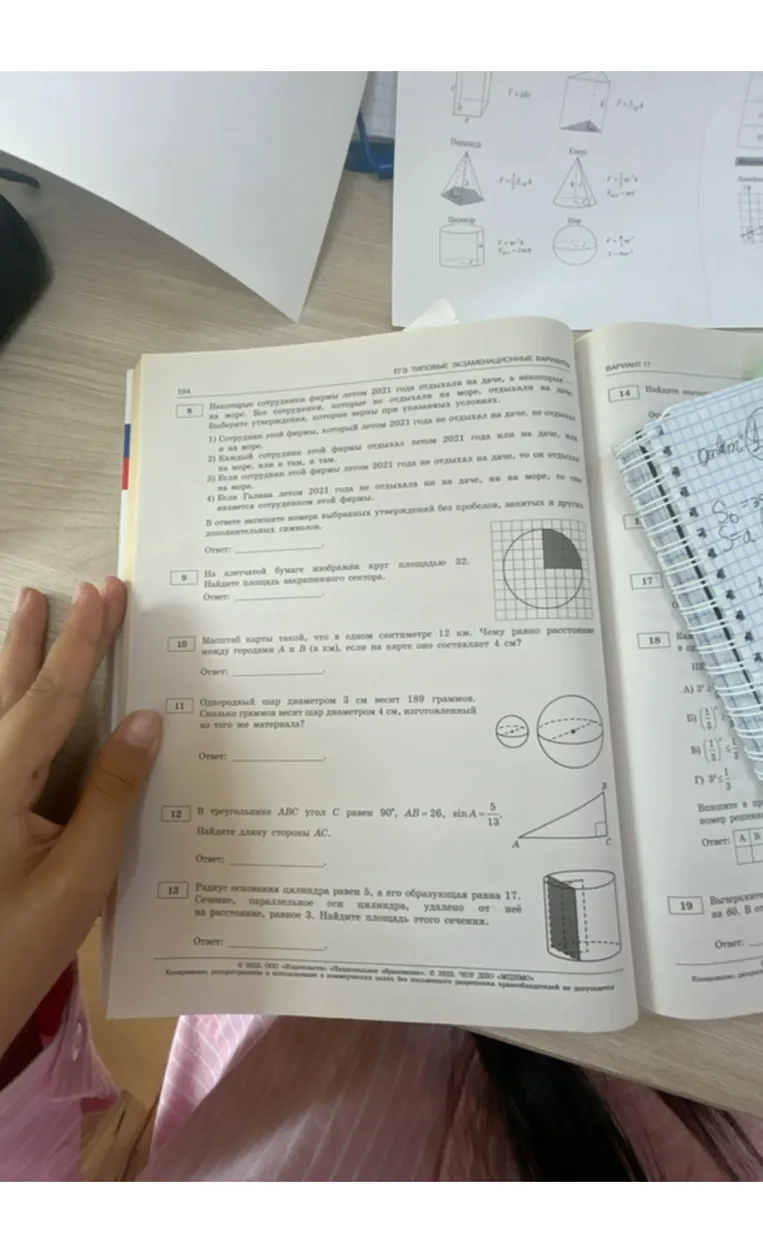 V = abc
Пирамида
Конус
Цилиндр
Шар
194
ЕГЭ. ТИПОВЫЕ ЭКЗАМЕНАЦИОННЫЕ ВАРИАНТЫ
8 Некоторые сотрудники фирмы летом 2021 года отдыхали на даче, а некоторые —
на море. Все сотрудники, которые не отдыхали на море, отдыхали на даче.
Выберите утверждения, которые верны при указанных условиях.
1) Сотрудник этой фирмы, который летом 2021 года не отдыхал на даче, не отдыхал
и на море.
2) Каждый сотрудник этой фирмы отдыхал летом 2021 года или на даче, или
на море, или и там, и там.
3) Если сотрудник этой фирмы летом 2021 года не отдыхал на даче, то он отдыхал
на море.
4) Если Галина летом 2021 года не отдыхала ни на даче, ни на море, то она
является сотрудником этой фирмы.
В ответе запишите номера выбранных утверждений без пробелов, запятых и других
дополнительных символов.
Ответ: ____________.
9 На клетчатой бумаге изображён круг площадью 32.
Найдите площадь закрашенного сектора.
Ответ: ____________.
10 Масштаб карты такой, что в одном сантиметре 12 км. Чему равно расстояние
между городами A и B (в км), если на карте оно составляет 4 см?
Ответ: ____________.
11 Однородный шар диаметром 3 см весит 189 граммов.
Сколько граммов весит шар диаметром 4 см, изготовленный
из того же материала?
Ответ: ____________.
12 В треугольнике ABC угол C равен 90°, AB = 26, sin A = 5/13.
Найдите длину стороны AC.
B
A
C
Ответ: ____________.
13 Радиус основания цилиндра равен 5, а его образующая равна 17.
Сечение, параллельное оси цилиндра, удалено от неё
на расстояние, равное 3. Найдите площадь этого сечения.
Ответ: ____________.
© 2023. ООО «Издательство «Национальное образование». © 2023. ЧОУ ДПО «МЦНМО»
Копирование, распространение и использование в коммерческих целях без письменного разрешения правообладателей не допускается
ВАРИАНТ 17
14 Найдите
17
18
А) 3ˣ ≥
Б) (1/3)ˣ
В) (1/3)ˣ ≤
Г) 3ˣ ≤ 1/3
Впишите в
номер
Ответ: А Б
19 Вычеркните
на 60. В
Ответ:
Копирование,